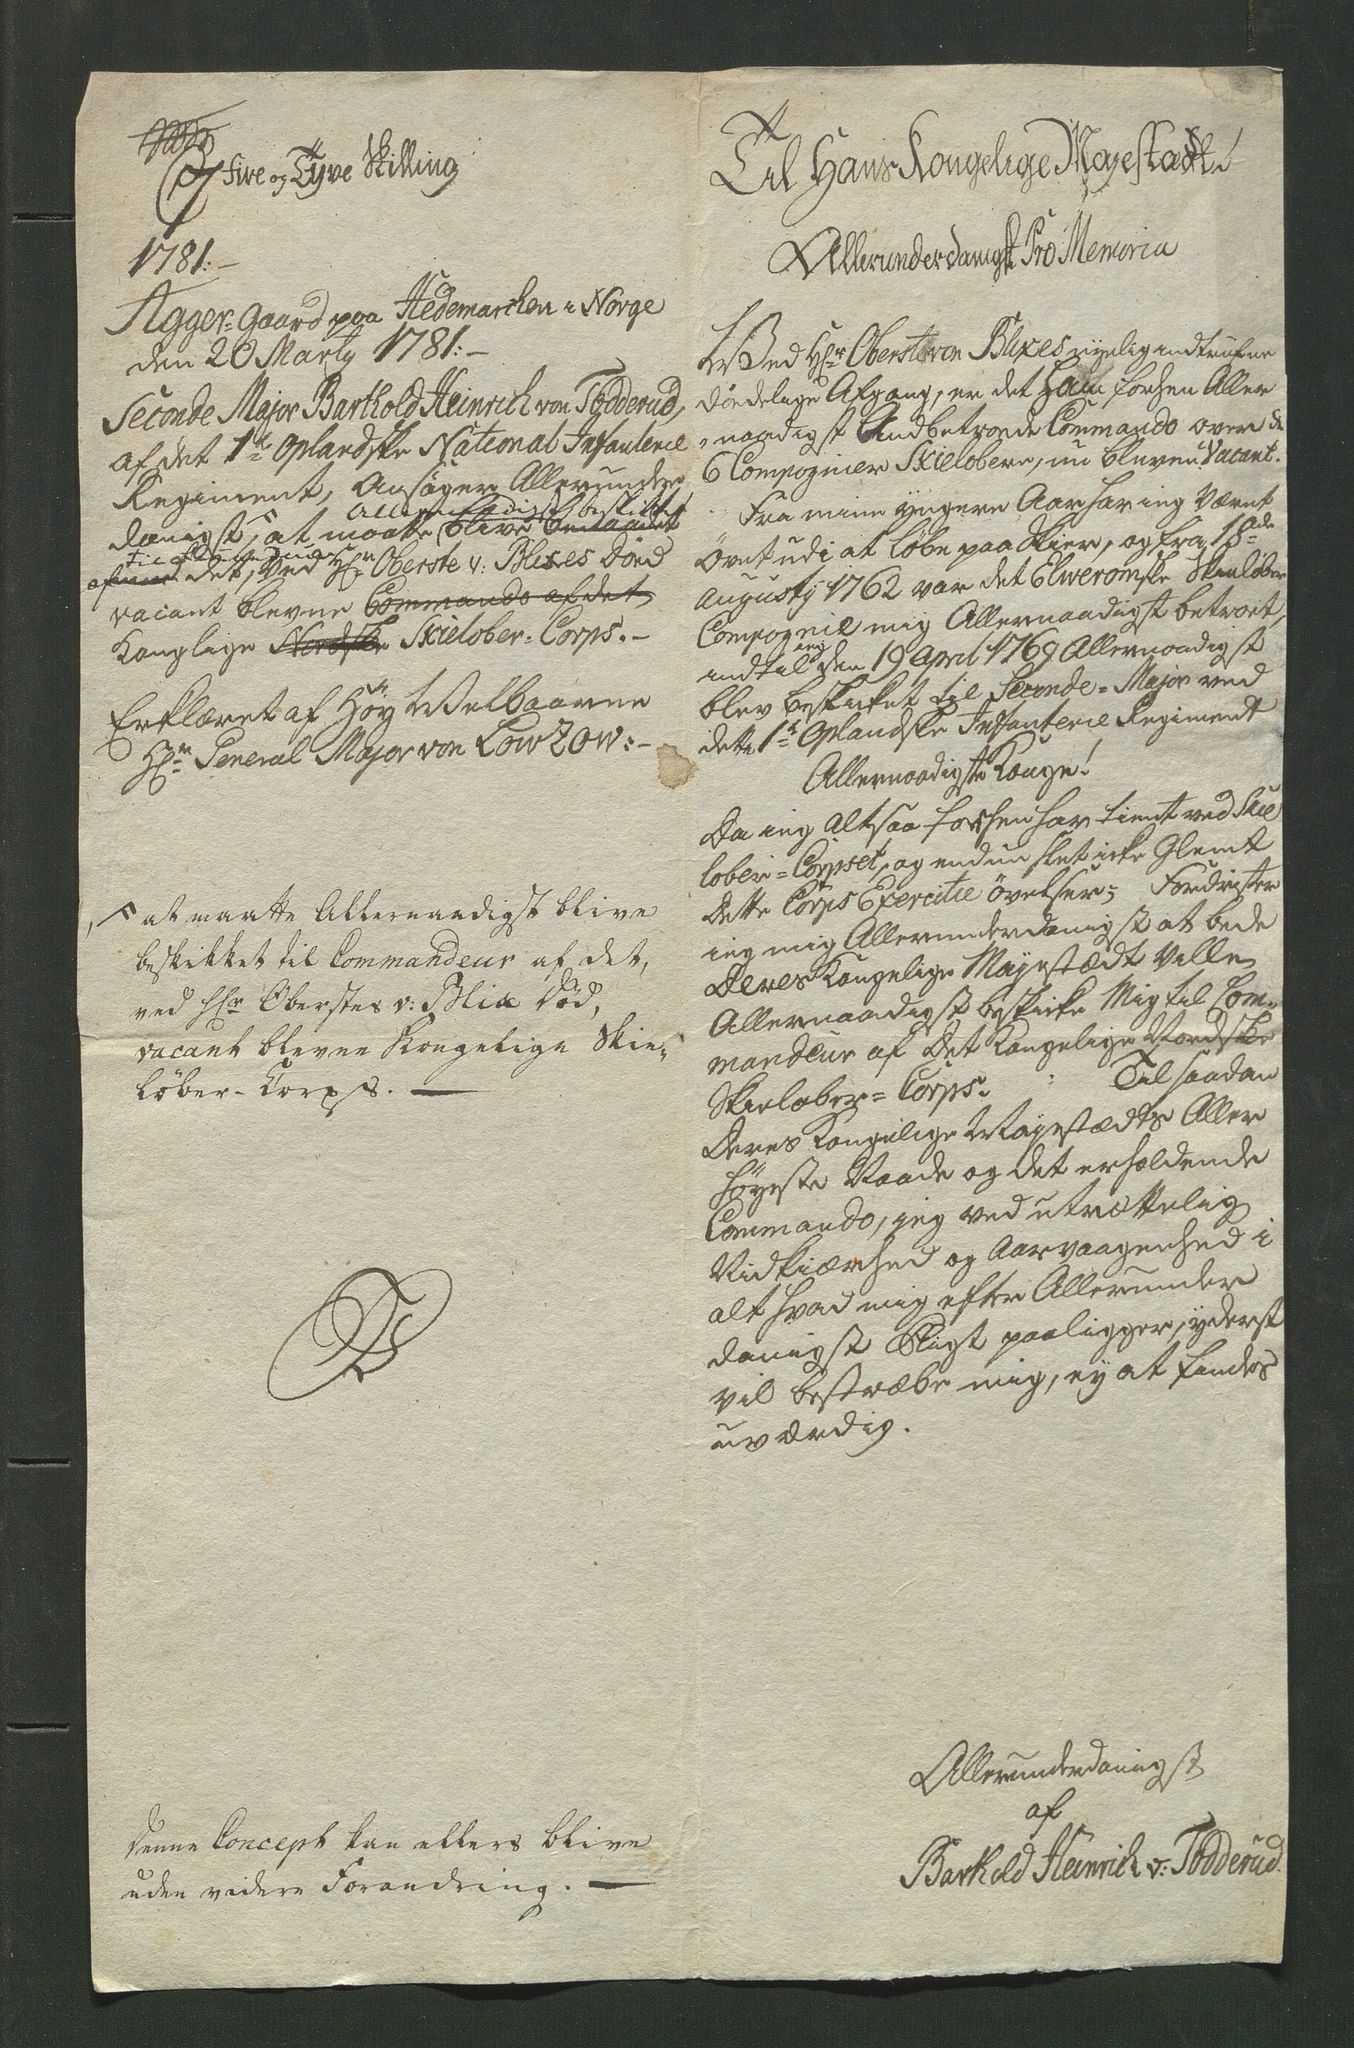 Fire og Tyve Skilling
1781:–
Agger-Gaard paa Hedemarchen i Norge
den 20 Marty 1781:–
Seconde Major Barthold Heinrich von Tødderud,
af det 1te Oplandske National Infanterie
Regiment, Ansøger Allerunder
danigst, at maatte blive
Allernaadigst beskikket
det, ved Hr Oberste v: Blixes Død
vacant blevne Commando af det
Konglige Nordske Skieløber-Corps.–
Erklæret af Höy Welbaarne
Hr General Major von Lowzow:–
at maatte Allernaadigst blive
beskikket til Commandeur af det,
ved Hr Oberstes v: Blix Død,
vacant blevne Kongelige Skie-
løber-Corps. —
Denne Concept kan ellers blive
uden videre Forandring. —
Til Hans Kongelige Mayestædt!
Allerunderdanigst Pro Memoria
Ved Hr Oberste von Blixes nyelig indtrufne
dödelige Afgang, er det Ham forhen Aller
naadigst Anbetroede Commando over de
6 Compagnier Skieløbere, nu bleven Vacant.
Fra mine yngere Aar har ieg Været
Övet udi at løbe paa Skier, og fra 18de
Augusty 1762 var det Elweromske Skieløber
Compagnie mig Allernaadigst betroet,
indtil ieg den 19 April 1769 Allernaadigst
blev beskicket til Seconde-Major ved
dette 1te Oplandske Infanterie Regiment
Allernaadigste Konge!
Da ieg altsaa forhen har tient ved Skie
løber-Corpset, og endnu slet icke Glemt
dette Corps Exercitie övelser; Fordrister
ieg mig Allerunderdanigst at bede
Deres Kongelige Mayestædt Ville
Allernaadigst beskicke Mig til Com-
mandeur af Det Kongelige Nordske
Skieløber-Corps. Til saadan
Deres Kongelige Mayestædts Aller
höyeste Naade og det erholdende
Commando, jeg ved utrættelig
Nidkiærhed og Aarvaagenhed i
alt hvad mig efter Allerunder
danigst Pligt paaligger, yderst
vil bestræbe mig, ey at findes
uværdig.
Allerunderdanigst
af
Barthold Heinrich v: Tødderud.